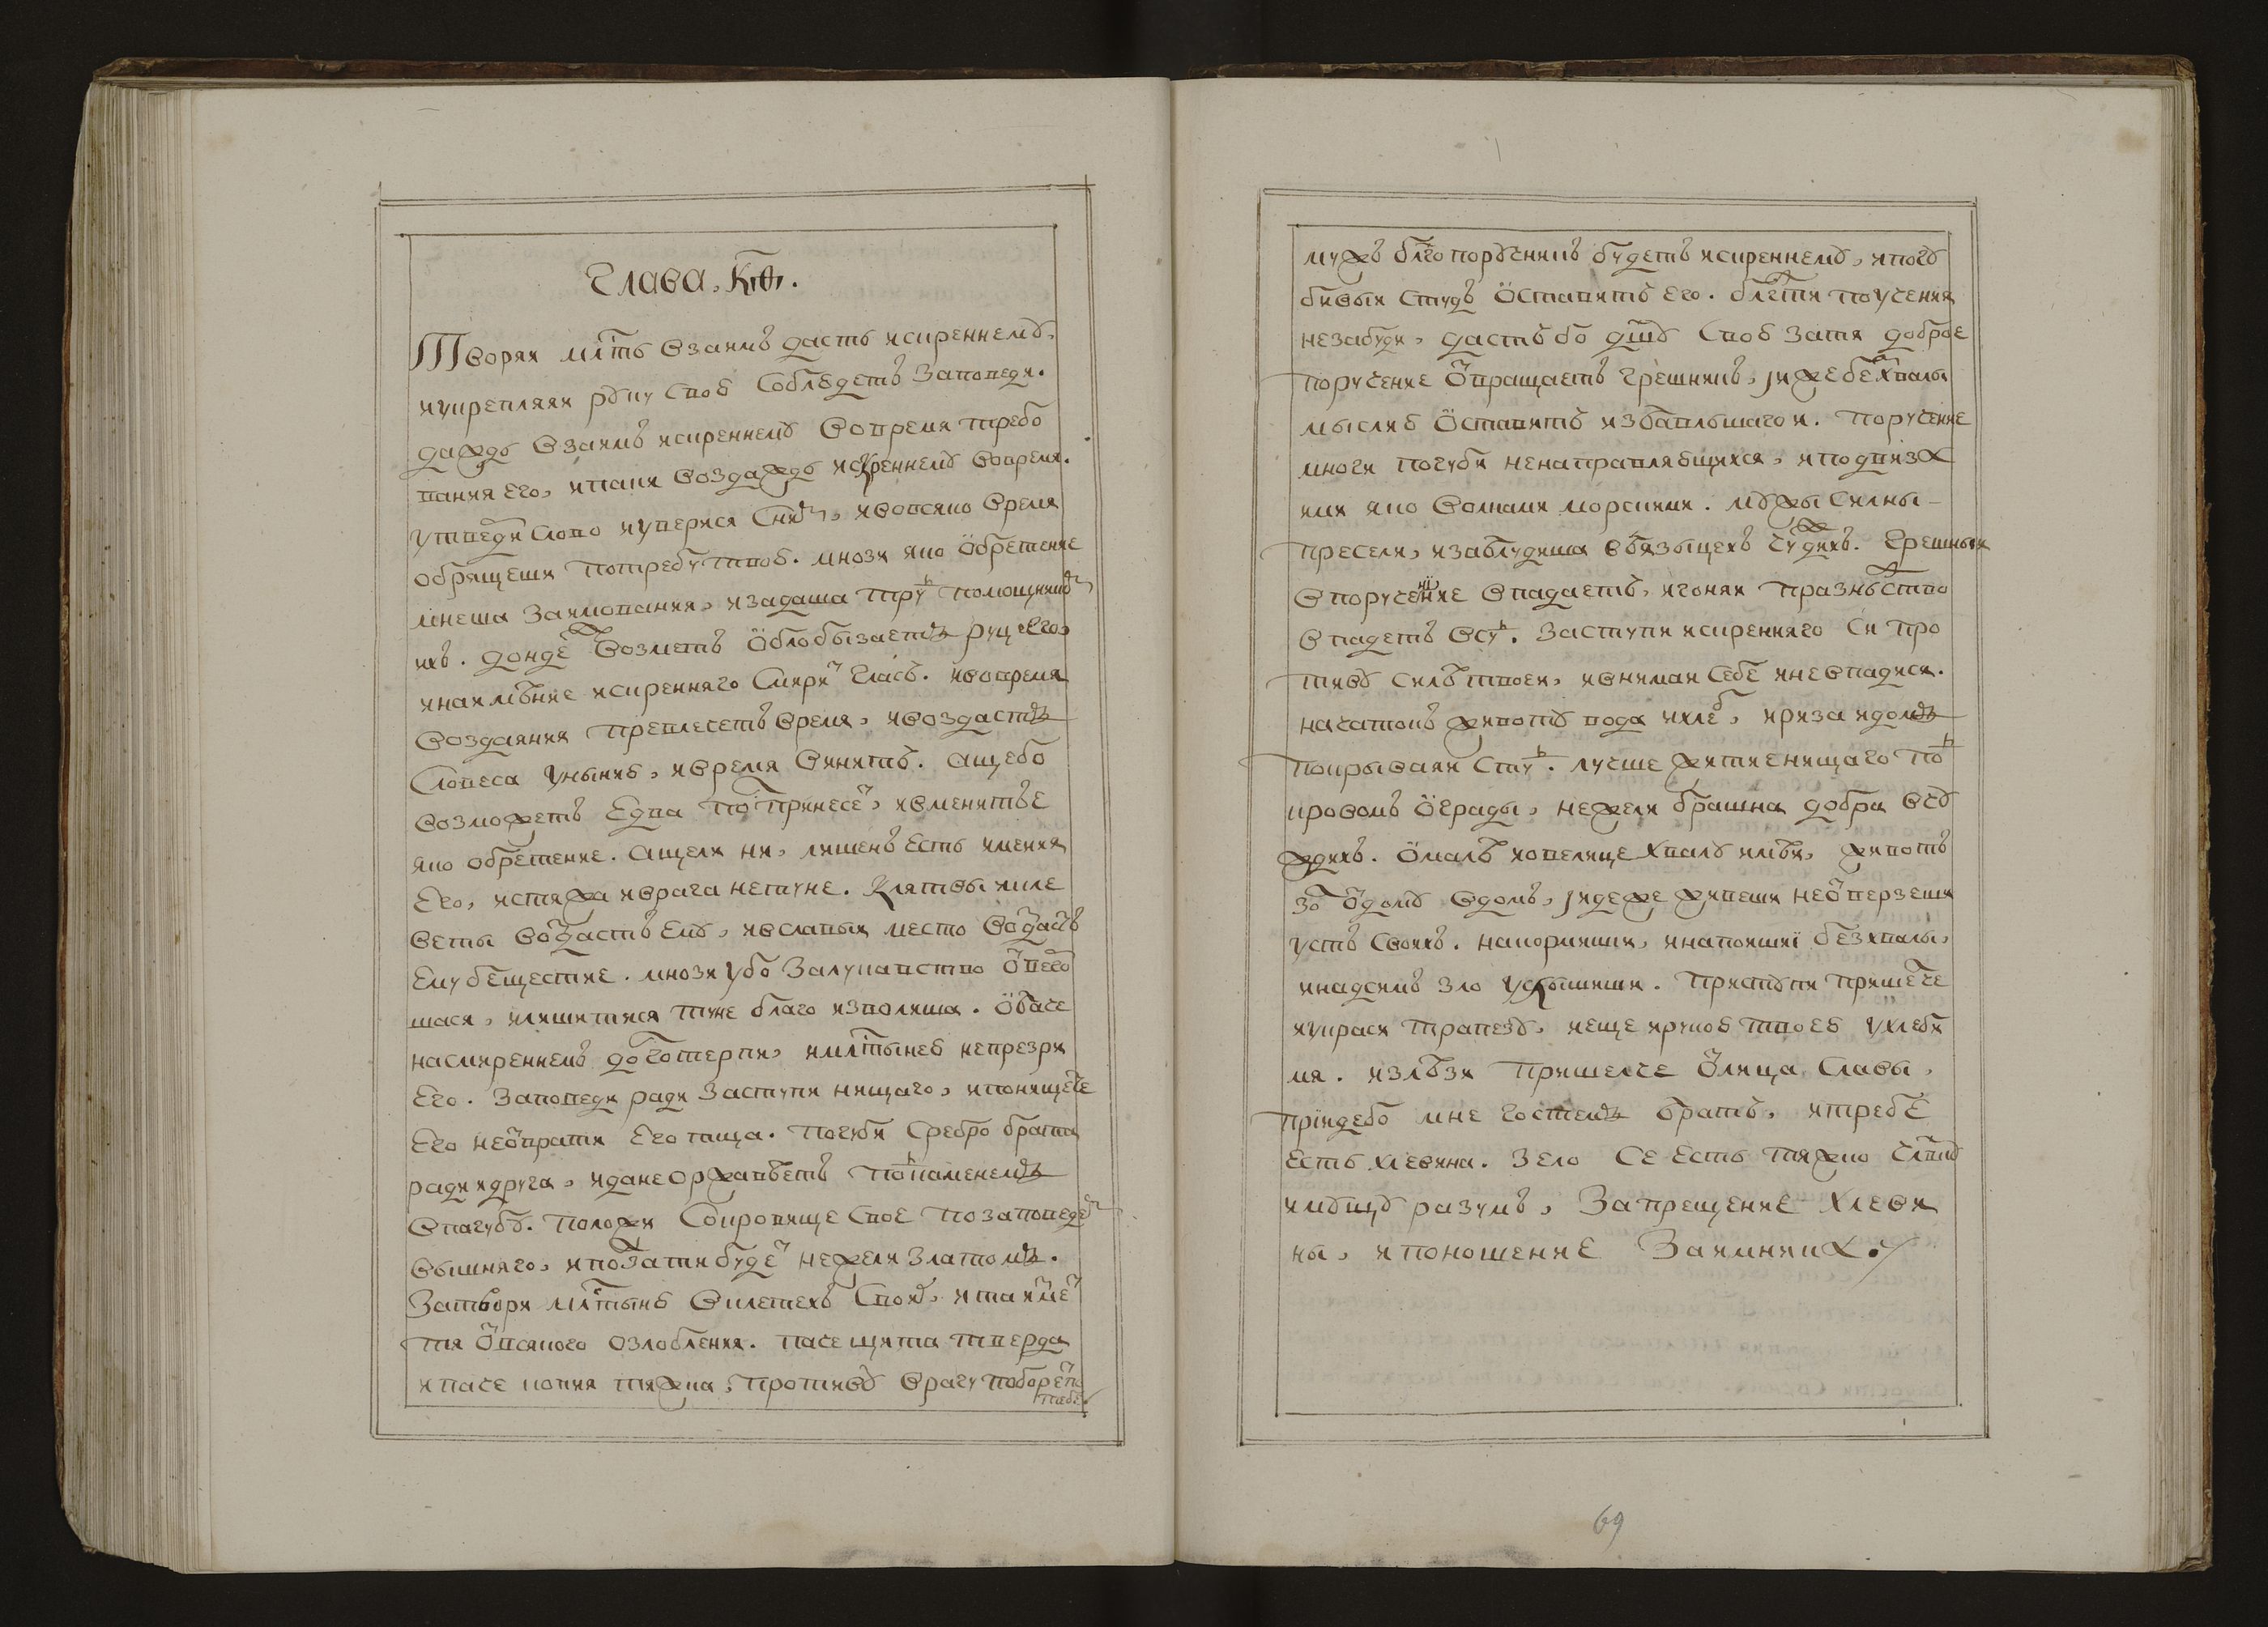 Глава, к҃ѳ.
Творяи мл҃ть взаимъ дастъ искреннемꙋ,
иукрепляяи рꙋку своѣ соблюдетъ заповеди.
даждь взаимъ искреннемꙋ вовремя требо
вания его, ипаки воздаждь искреннемꙋ вовремя.
утверди слово иуверися снимъ, ивовсяко время
обрящеши потребу твою. мнози яко ѡбретение
мнеша заимования, изадаша трудъ помощникомъ
ихъ. дондеже возметъ ѡблобызаетъ руце его,
инаимѣние искренняго смиритъ гласъ. ивовремя
воздаяния превлечетъ время, ивоздастъ
словеса уныния, ивремя винитъ. ащебо
возможетъ едва полъ принесетъ, ивменитъе
яко обретение. ащели ни, лишенъ есть имения
его, истяжа иврага нетуне. клятвы икле
веты воздастъ емꙋ, ивславыи место воздастъ
ему бещестие. мнози убо залукавство ѡвего
шася, илишитися туне благо изволиша. ѡбаче
насмиреннемъ долготерпи, имл҃тынею непрезри
его. заповеди ради заступи нищаго, ипонищете
его неѡврати его тща. погуби сребро брата
ради идруга, иданеоржавѣетъ подкаменемъ
впагубꙋ. положи сокровище свое позаповедемъ
вышняго, иползати будетъ нежели златомъ.
затвори мл҃тыню вклетехъ своихъ, ита имет
тя ѡвсякого озлобления. паче щита тверда
ипаче копия тяжка, противꙋ врагу поборетъ
потебе.
мужъ бл҃го поручникъ будетъ искреннемꙋ, ипогꙋ
бивыи студъ ѡставитъ его. бл҃гти поручения
незабуди, дастъ бо дш҃ꙋ свою затя доброе
поручение ѡвращаетъ грешникъ, иже безхвалы
мыслию ѡставитъ избавльшаго и. поручение
многи погуби ненаправляющихся, иподвиза
ихи яко волнами морскими. мꙋжы силны
пресели, изаблудиша воязыцехъ чуждихъ. грешныи
впоручение впадаетъ, игоняи празньство
впадетъ всудъ. заступи искренняго си про
тивꙋ силѣ твоеи, ивнимаи себе иневпадися.
начатокъ животꙋ вода ихлебъ, ириза идомъ
покрываяи студъ. лучше житиенищаго подъ
кровомъ ѡграды, нежели брашна добра вчꙋ
ждихъ. ѡмалѣ иовелице хвалꙋ имѣи, животъ
золъ ѿдомꙋ вдомъ, идеже живеши неѿверзеши
устъ своихъ. накормиши, инапоиши безхвалы,
инадсимъ зло услышиши. пристꙋпи пришелче
иукраси трапезꙋ, ижеще ируцою твоею ухлеби
мя. излѣзи пришелче ѿлица славы,
приидебо мне гостемъ братъ, итребѣ
есть хлевина. зело се есть тяжко члвкꙋ
имꙋщꙋ разумъ, запрещение хлеви
ны, ипоношение заимника.
69